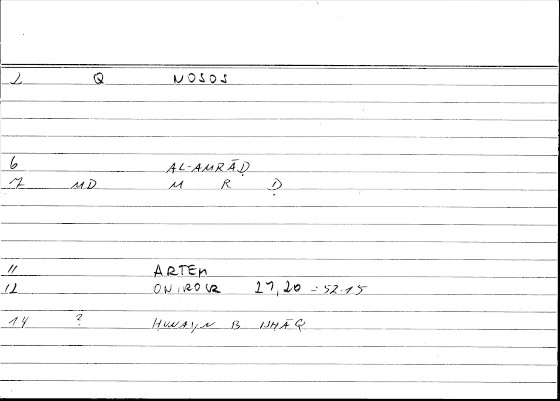 1 Q NOSOS
6 AL-AMRĀḌ
7 MD M R Ḍ
11 ARTEM
12 ONIROCR 27,20 = 52.15
14 ? HUNAYN B ISHĀQ